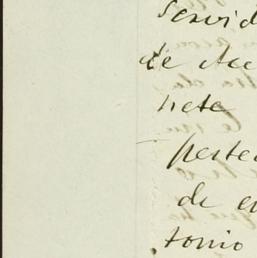 Servid
de Ace
nete
perte
de e
tonio